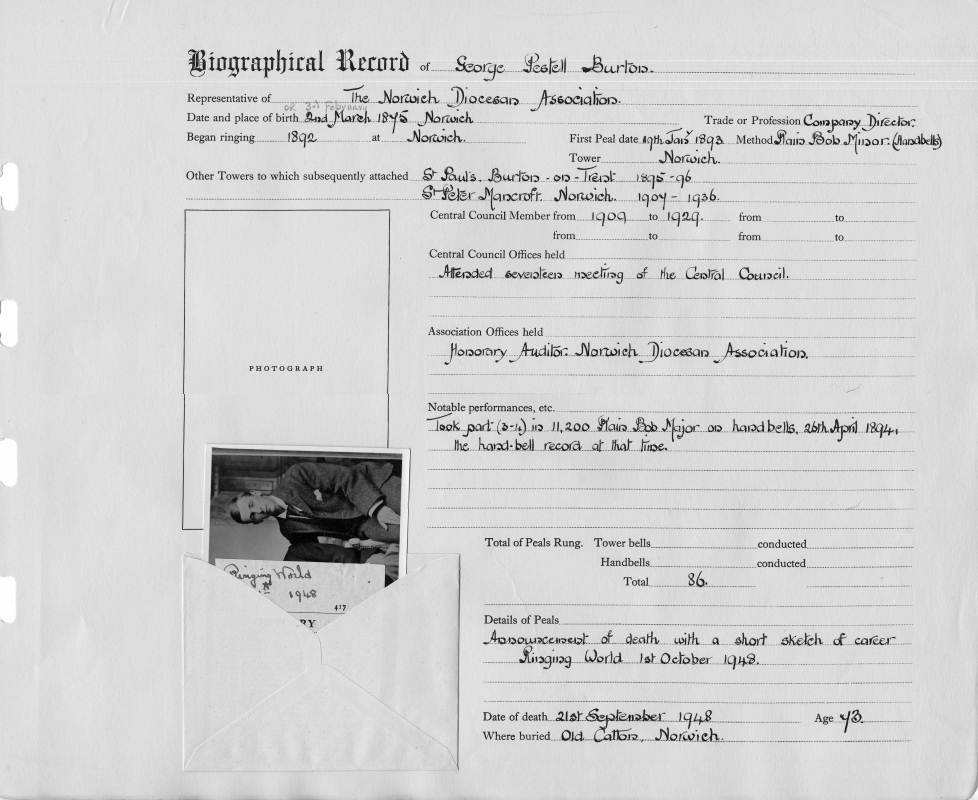 Biographical Record of George Pestell Burton.
Representative of The Norwich Diocesan Association.
or 3rd February
Date and place of birth 2nd March 1875 Norwich Trade or Profession Company Director.
Began ringing 1892 at Norwich. First Peal date 19th Jany 1893 Method Plain Bob Minor. (Handbells)
Tower Norwich.
Other Towers to which subsequently attached St Paul's. Burton-on-Trent 1895-96
St Peter Mancroft. Norwich. 1907 - 1936.
Central Council Member from 1909 to 1929. from to
from to from to
Central Council Offices held
Attended seventeen meeting of the Central Council.
Association Offices held
Honorary Auditor. Norwich Diocesan Association.
PHOTOGRAPH
Notable performances, etc.
Took part (3-4) in 11,200 Plain Bob Major on handbells, 26th April 1894,
the hand-bell record at that time.
Total of Peals Rung. Tower bells conducted
Handbells conducted
Total 86.
Ringing World
1948
417
RY
Details of Peals
Announcement of death with a short sketch of career
Ringing World 1st October 1948.
Date of death 21st September 1948 Age 73.
Where buried Old Catton, Norwich.